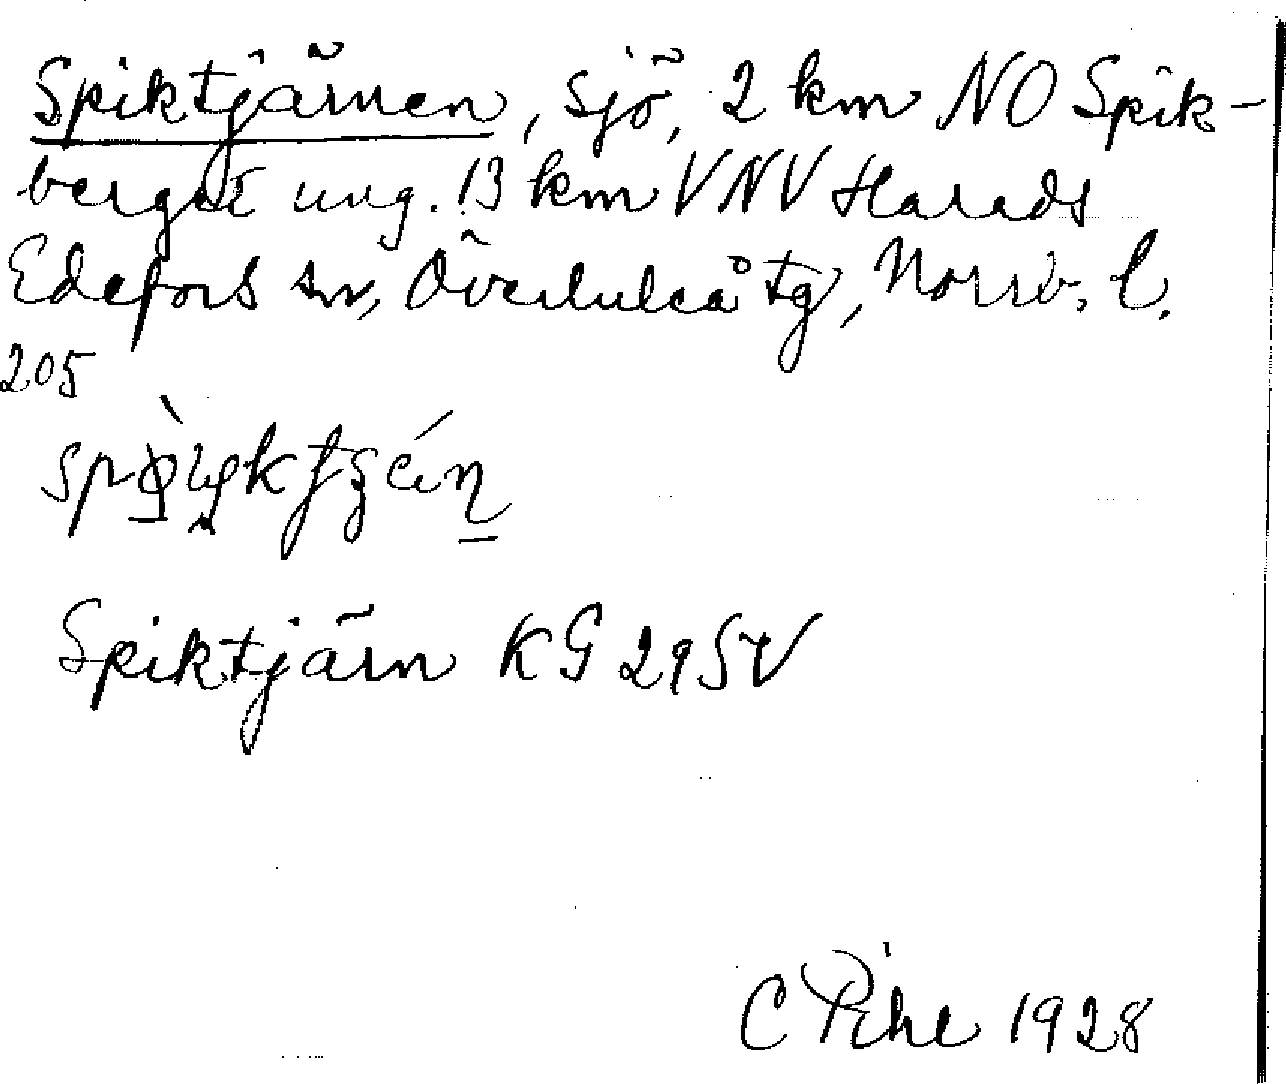 Spiktjärnen, sjö, 2 km NO Spik-
berget ung. 13 km VNV Harads
Edefors sn, Överluleå tg, Norrb. l.
205
Spiktjärn KG 29 SV
C Pihl 1928